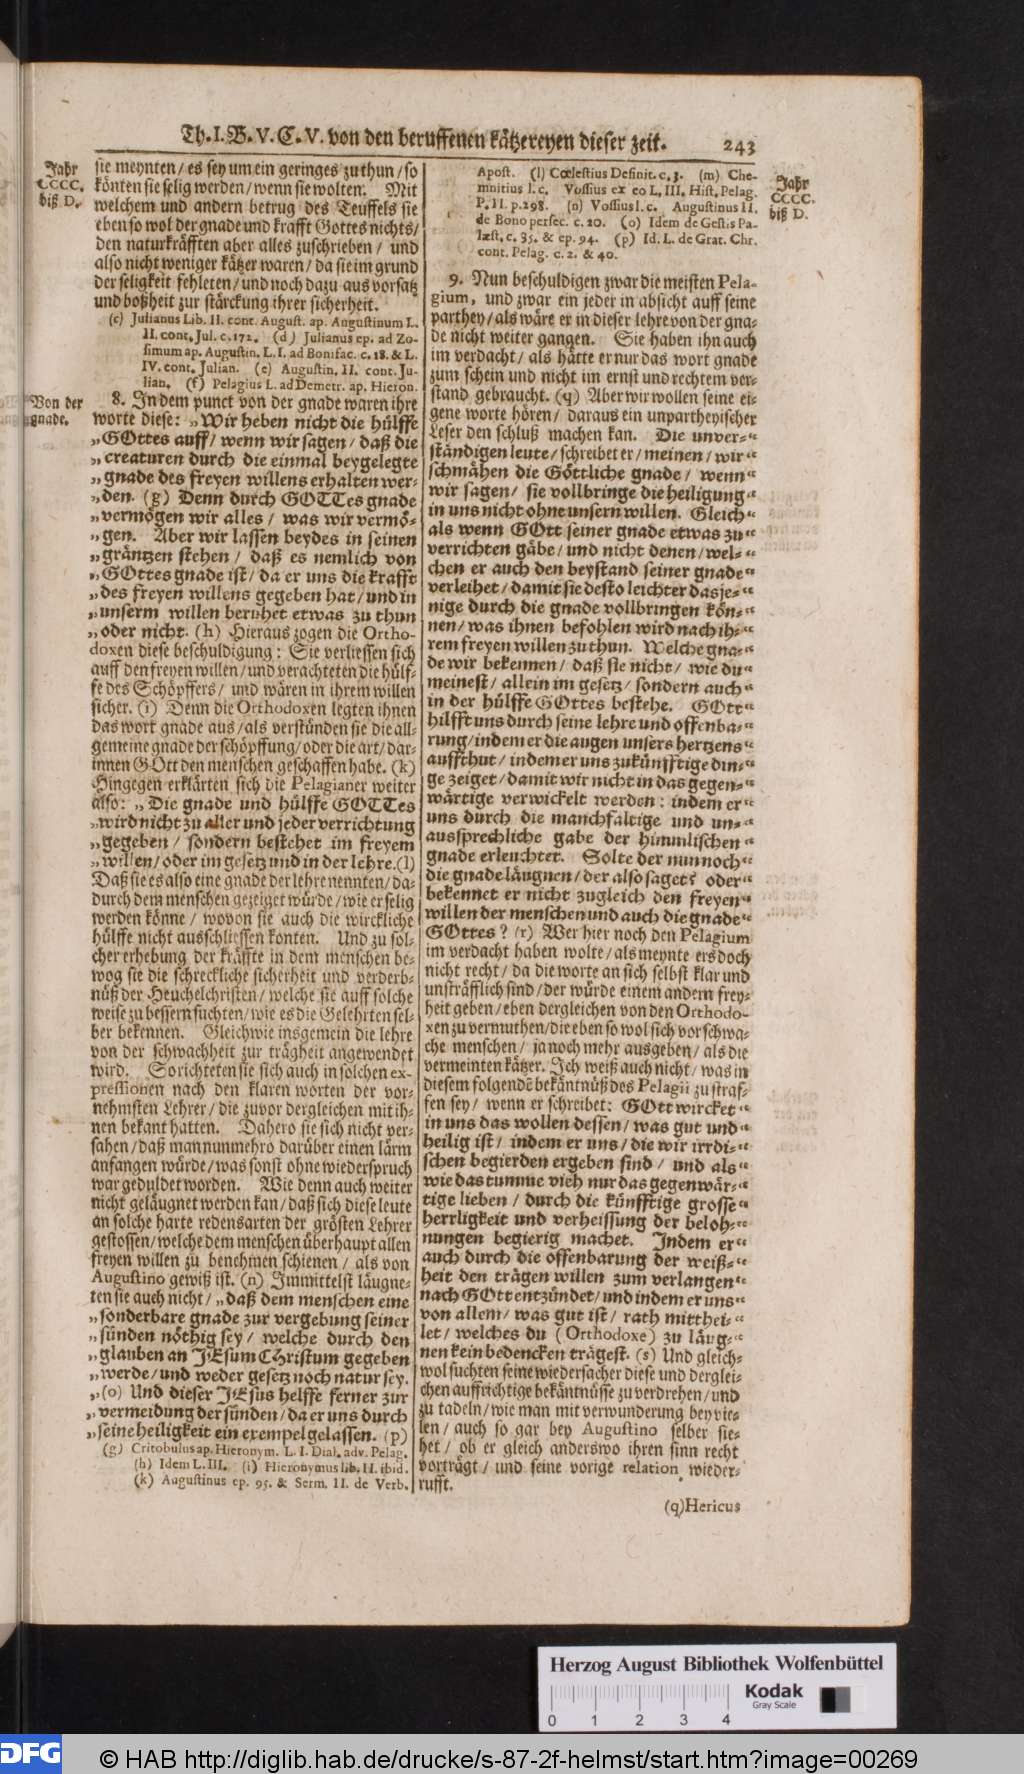 Th. I. B. V. C. V. von den beruffenen kätzereyen dieser zeit. 243
Jahr
CCCC.
biß D.
sie meynten / es sey um ein geringes zu thun / so
könten sie selig werden / wenn sie wolten. Mit
welchem und andern betrug des Teuffels sie
eben so wol der gnade und krafft Gottes nichts /
den naturkräfften aber alles zuschrieben / und
also nicht weniger kätzer waren / da sie im grund
der seligkeit fehleten / und noch dazu aus vorsatz
und boßheit zur stärckung ihrer sicherheit.
(c) Julianus Lib. II. cont. August. ap. Augustinum L.
II. cont. Jul. c. 172. (d) Julianus ep. ad Zo-
simum ap. Augustin. L. I. ad Bonifac. c. 18. & L.
IV. cont. Julian. (e) Augustin. II. cont. Ju-
lian. (f) Pelagius L. ad Demetr. ap. Hieron.
Von der
gnade.
8. In dem punct von der gnade waren ihre
worte diese: „Wir heben nicht die hülffe
„GOttes auff / wenn wir sagen / daß die
„creaturen durch die einmal beygelegte
„gnade des freyen willens erhalten wer-
„den. (g) Denn durch GOTTes gnade
„vermögen wir alles / was wir vermö-
„gen. Aber wir lassen beydes in seinen
„gräntzen stehen / daß es nemlich von
„GOttes gnade ist / da er uns die krafft
„des freyen willens gegeben hat / und in
„unserm willen beruhet etwas zu thun
„oder nicht. (h) Hieraus zogen die Ortho-
doxen diese beschuldigung: Sie verliessen sich
auff den freyen willen / und verachteten die hülf-
fe des Schöpffers / und wären in ihrem willen
sicher. (i) Denn die Orthodoxen legten ihnen
das wort gnade aus / als verstünden sie die all-
gemeine gnade der schöpffung / oder die art / dar-
innen GOtt den menschen geschaffen habe. (k)
Hingegen erklärten sich die Pelagianer weiter
also: „Die gnade und hülffe GOTTes
„wird nicht zu aller und jeder verrichtung
„gegeben / sondern bestehet im freyem
„willen / oder im gesetz und in der lehre. (l)
Daß sie es also eine gnade der lehre nennten / da-
durch dem menschen gezeiget würde / wie er selig
werden könne / wovon sie auch die wirckliche
hülffe nicht ausschliessen konten. Und zu sol-
cher erhebung der kräffte in dem menschen be-
wog sie die schreckliche sicherheit und verderb-
nüß der Heuchelchristen / welche sie auff solche
weise zu bessern suchten / wie es die Gelehrten sel-
ber bekennen. Gleichwie insgemein die lehre
von der schwachheit zur trägheit angewendet
wird. So richteten sie sich auch in solchen ex-
pressionen nach den klaren worten der vor-
nehmsten Lehrer / die zuvor dergleichen mit ih-
nen bekant hatten. Dahero sie sich nicht ver-
sahen / daß man nunmehro darüber einen lärm
anfangen würde / was sonst ohne wiederspruch
war geduldet worden. Wie denn auch weiter
nicht geläugnet werden kan / daß sich diese leute
an solche harte redensarten der grösten Lehrer
gestossen / welche dem menschen überhaupt allen
freyen willen zu benehmen schienen / als von
Augustino gewiß ist. (n) Immittelst läugne-
ten sie auch nicht / „daß dem menschen eine
„sonderbare gnade zur vergebung seiner
„sünden nöthig sey / welche durch den
„glauben an JEsum CHristum gegeben
„werde / und weder gesetz noch natur sey.
„(o) Und dieser JEsus helffe ferner zur
„vermeidung der sünden / da er uns durch
„seine heiligkeit ein exempel gelassen. (p)
(g) Critobulus ap. Hieronym. L. I. Dial. adv. Pelag.
(h) Idem L. III. (i) Hieronymus lib. II. ibid.
(k) Augustinus ep. 95. & Serm. II. de Verb.
Jahr
CCCC.
biß D.
Apost. (l) Cœlestius Definit. c. 3. (m) Che-
mnitius l. c. Vossius ex eo L. III. Hist. Pelag.
P. II. p. 298. (n) Vossius l. c. Augustinus II.
de Bono persec. c. 20. (o) Idem de Gestis Pa-
læst. c. 35. & ep. 94. (p) Id. L. de Grat. Chr.
cont. Pelag. c. 2. & 40.
9. Nun beschuldigen zwar die meisten Pela-
gium, und zwar ein jeder in absicht auff seine
parthey / als wäre er in dieser lehre von der gna-
de nicht weiter gangen. Sie haben ihn auch
im verdacht / als hätte er nur das wort gnade
zum schein und nicht im ernst und rechtem ver-
stand gebraucht. (q) Aber wir wollen seine ei-
gene worte hören / daraus ein unpartheyischer
Leser den schluß machen kan. Die unver-“
ständigen leute / schreibet er / meinen / wir“
schmähen die Göttliche gnade / wenn“
wir sagen / sie vollbringe die heiligung“
in uns nicht ohne unsern willen. Gleich“
als wenn GOtt seiner gnade etwas zu“
verrichten gäbe / und nicht denen / wel-“
chen er auch den beystand seiner gnade“
verleihet / damit sie desto leichter das je-“
nige durch die gnade vollbringen kön-“
nen / was ihnen befohlen wird nach ih-“
rem freyen willen zu thun. Welche gna-“
de wir bekennen / daß sie nicht / wie du“
meinest / allein im gesetz / sondern auch“
in der hülffe GOttes bestehe. GOtt“
hilfft uns durch seine lehre und offenba-“
rung / indem er die augen unsers hertzens“
auffthut / indem er uns zukünfftige din-“
ge zeiget / damit wir nicht in das gegen-“
wärtige verwickelt werden: indem er“
uns durch die manchfaltige und un-“
aussprechliche gabe der himmlischen“
gnade erleuchtet. Solte der nun noch“
die gnade läugnen / der also saget? oder“
bekennet er nicht zugleich den freyen“
willen der menschen und auch die gnade“
GOttes? (r) Wer hier noch den Pelagium
im verdacht haben wolte / als meynte ers doch
nicht recht / da die worte an sich selbst klar und
unsträfflich sind / der würde einem andern frey-
heit geben / eben dergleichen von den Orthodo-
xen zu vermuthen / die eben so wol sich vor schwa-
che menschen / ja noch mehr ausgeben / als die
vermeinten kätzer. Ich weiß auch nicht / was in
diesem folgendē bekäntnüß des Pelagii zu straf-
fen sey / wenn er schreibet: GOtt wircket“
in uns das wollen dessen / was gut und“
heilig ist / indem er uns / die wir irrdi-“
schen begierden ergeben sind / und als“
wie das tumme vieh nur das gegenwär-“
tige lieben / durch die künfftige grosse“
herrligkeit und verheissung der beloh-“
nungen begierig machet. Indem er“
auch durch die offenbarung der weiß-“
heit den trägen willen zum verlangen“
nach GOtt entzündet / und indem er uns“
von allem / was gut ist / rath mitthei-“
let / welches du (Orthodoxe) zu läug-“
nen kein bedencken trägest. (s) Und gleich-
wol suchten seine wiedersacher diese und derglei-
chen auffrichtige bekäntnüsse zu verdrehen / und
zu tadeln / wie man mit verwunderung bey vie-
len / auch so gar bey Augustino selber sie-
het / ob er gleich anderswo ihren sinn recht
vorträgt / und seine vorige relation wieder-
rufft.
(q) Hericus
Herzog August Bibliothek Wolfenbüttel
Kodak
Gray Scale
0 1 2 3 4
DFG © HAB http://diglib.hab.de/drucke/s-87-2f-helmst/start.htm?image=00269